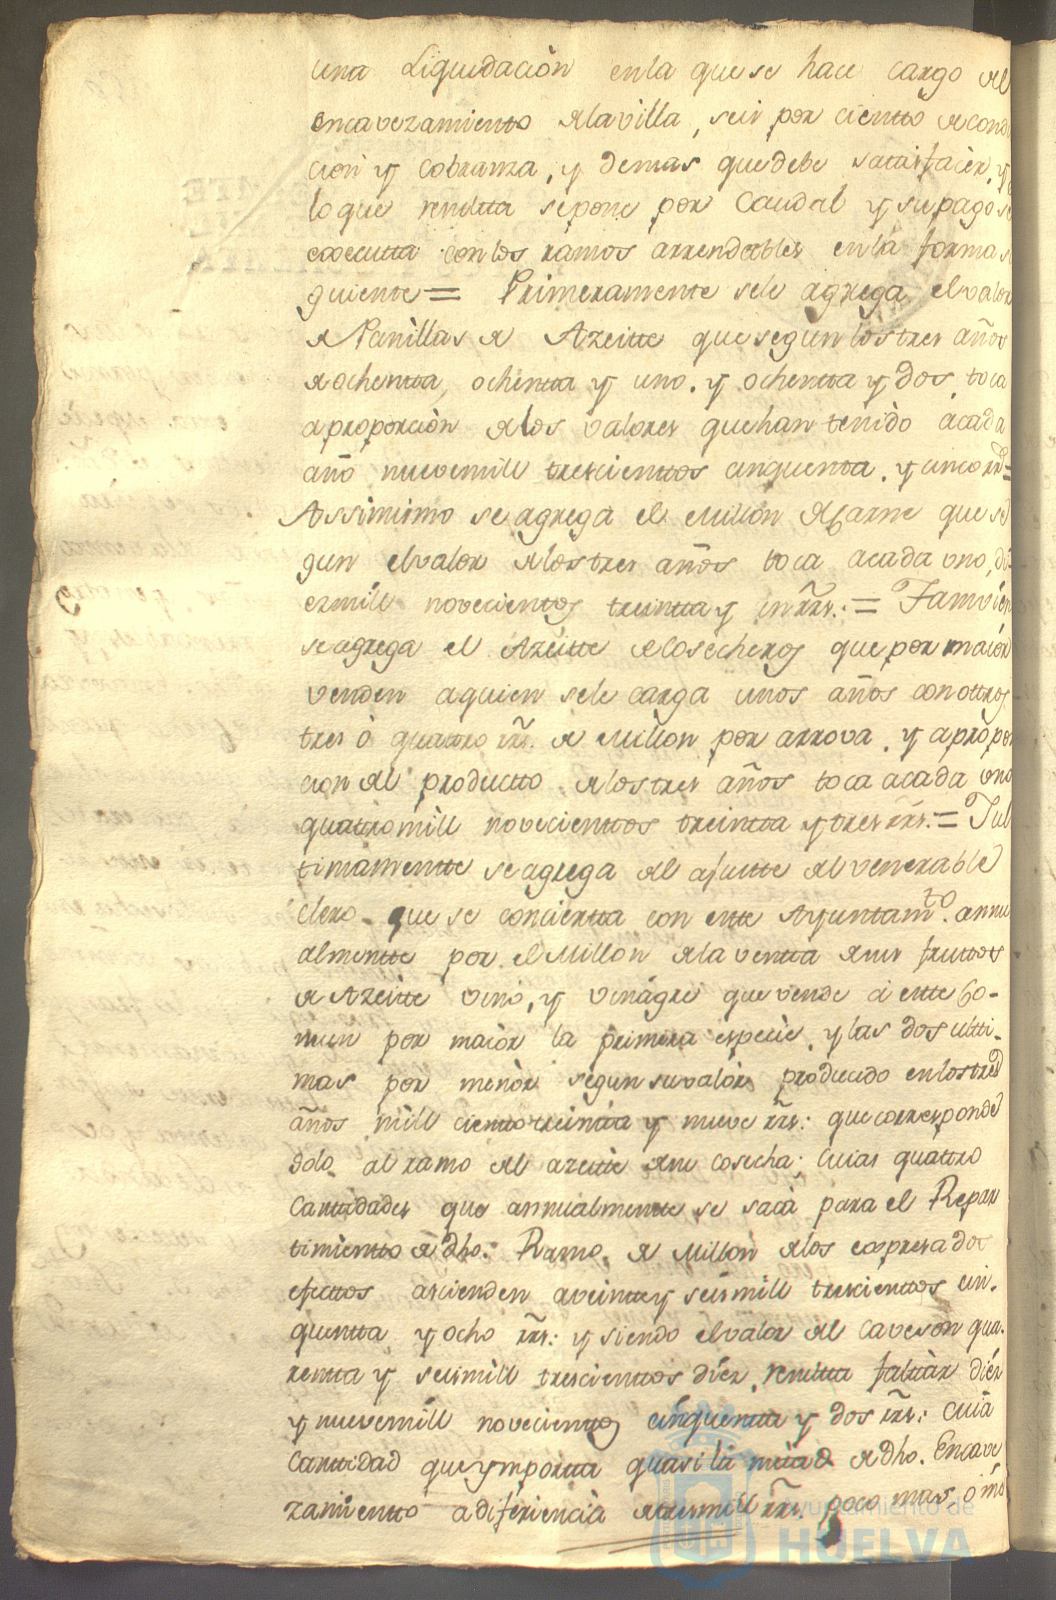 una Liquidaciòn enla que se hace cargo del
encavezamiento delavilla, seis por ciento de condu
cion y Cobranza, y demas quedebe sattisfacer, y
lo que resulta sepone por Caudal y supago se
executta con los ramos arrendables en la forma si
guiente = Primeramente sele agrega el valor
de Panillas de Azeitte que segun los tres años
de ochentta, ochentta y uno, y ochentta y dos, toca
aproporciòn delos valores quehan tenido àcada
año nuevemill trescienttos cinquenta, y cinco rrs=
Assimismo se agrega el Millòn de Carne que se
gun el valor delos tres años toca acada uno, di
ezmill novecientos treintta y un rrs.= Tamvien
se agrega el Azeitte de Cosecheros que por maiòr
venden aquien sele carga unos años con ottros
tres ò quattro rrs. de Millon por arrova, y apropor
cion del productto delos tres años toca acada uno
quattromill novecienttos treintta y tres rrs.= Iul
timamentte se agrega el ajustte del venerable
Clero que se conciertta con este Ayuntamto. annu
almentte por el Millon dela ventta de sus fruttos
de Azeitte vino, y vinàgre que vende à estte Co-
mun por maiòr la primera especie, y las dos ultti-
mas por menòr segun su valòr producido en los tres
años mill ciento treintta y nueve rrs: que corresponde
solo al ramo del azeitte de su cosecha; Cuias quattro
Canttidades que annualmentte se sacà para el Repar
timientto de dho. Ramo de Millon delos expresados
efecttos ascienden aveintte y seis mill trescienttos cin-
quentta y ocho rrs: y siendo el valor del Caveson qua-
rentta y seismill trescienttos dièz, resultta falttàr dièz
y nuevemill novecientos cinquentta y dos rrs: Cuià
Canttidad que ymportta quasi la mitad de dho. Encave
zamientto a diferiencia de tresmill rrs. poco mas, ò mó
Ayuntamiento de
HUELVA